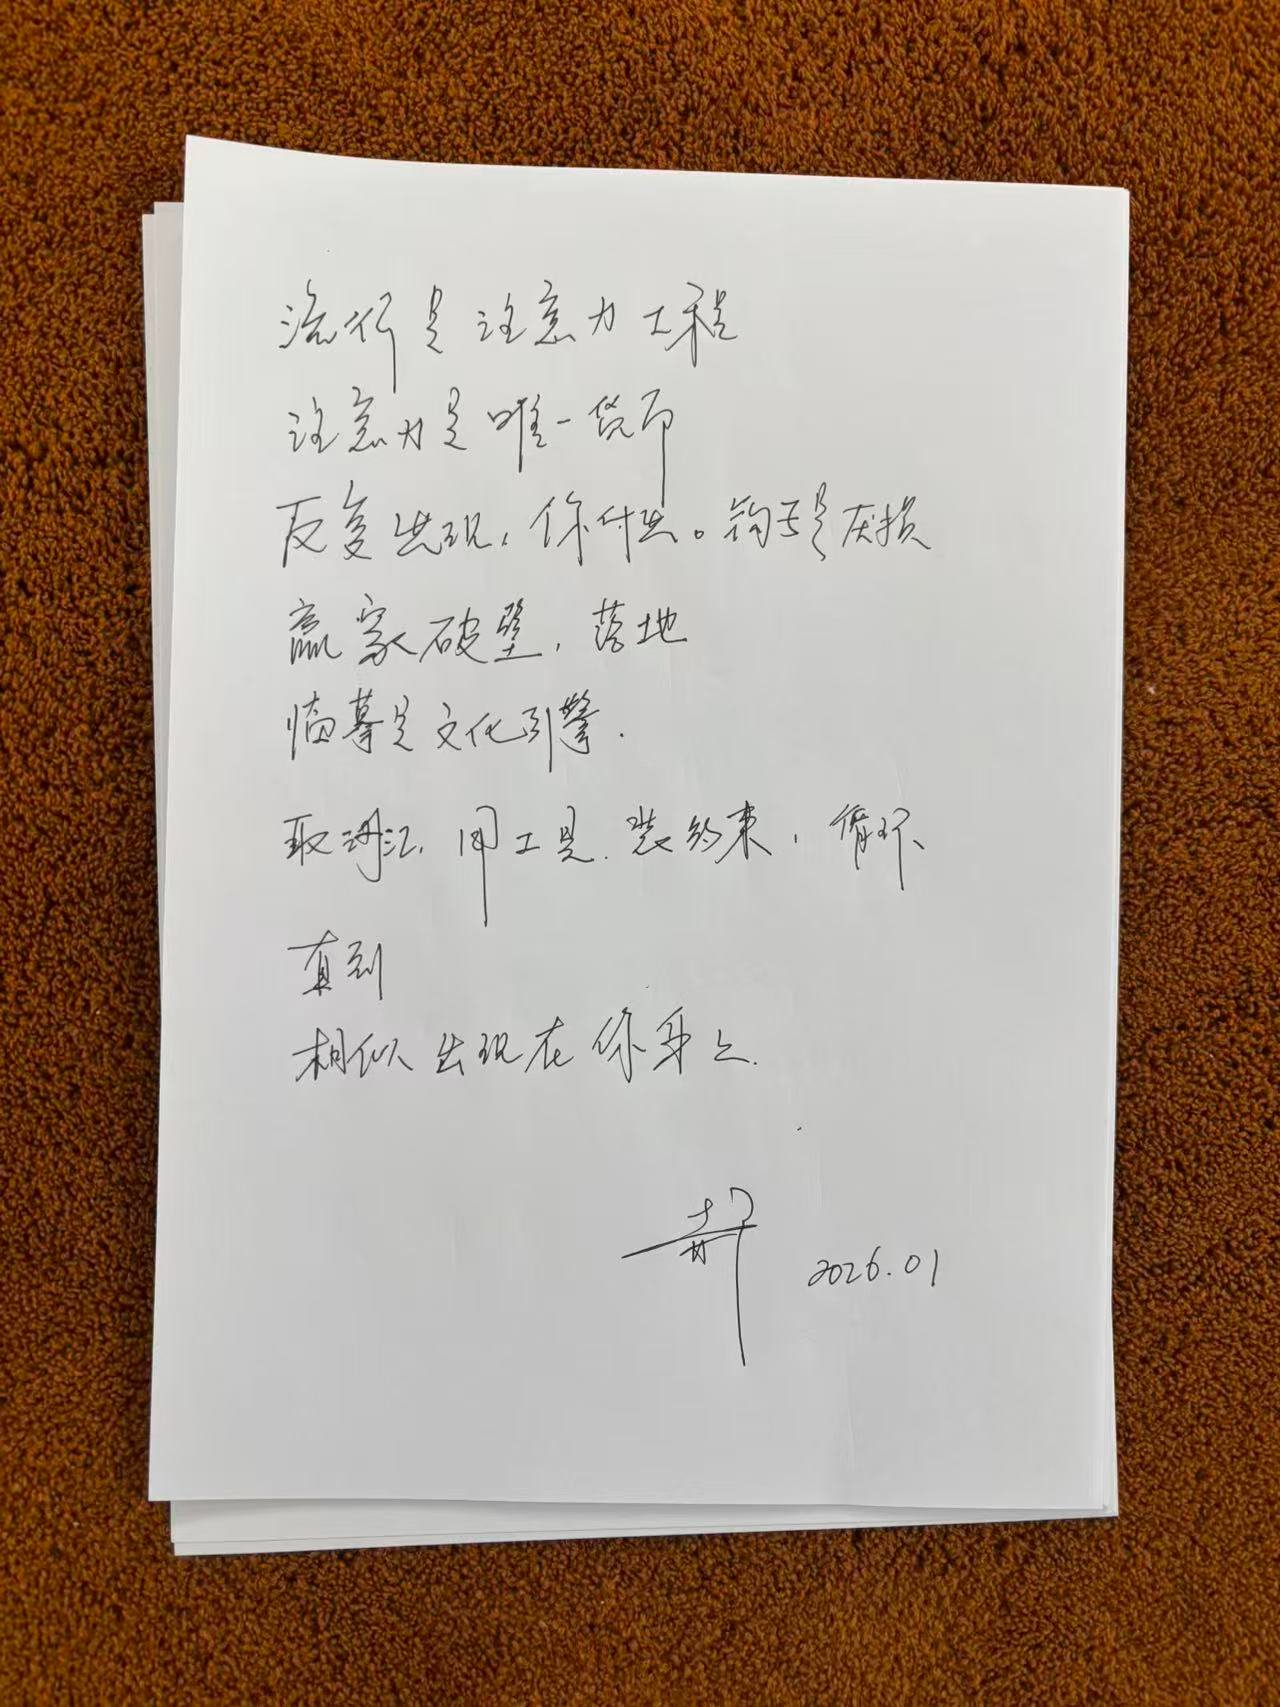 流行是注意力工程
注意力是唯一货币
反复出现，你付出。钩子是厌损
赢家破壁，落地
临摹是文化引擎.
取词汇，用工具.装约束，循环
直到
相似出现在你身上.
2026.01